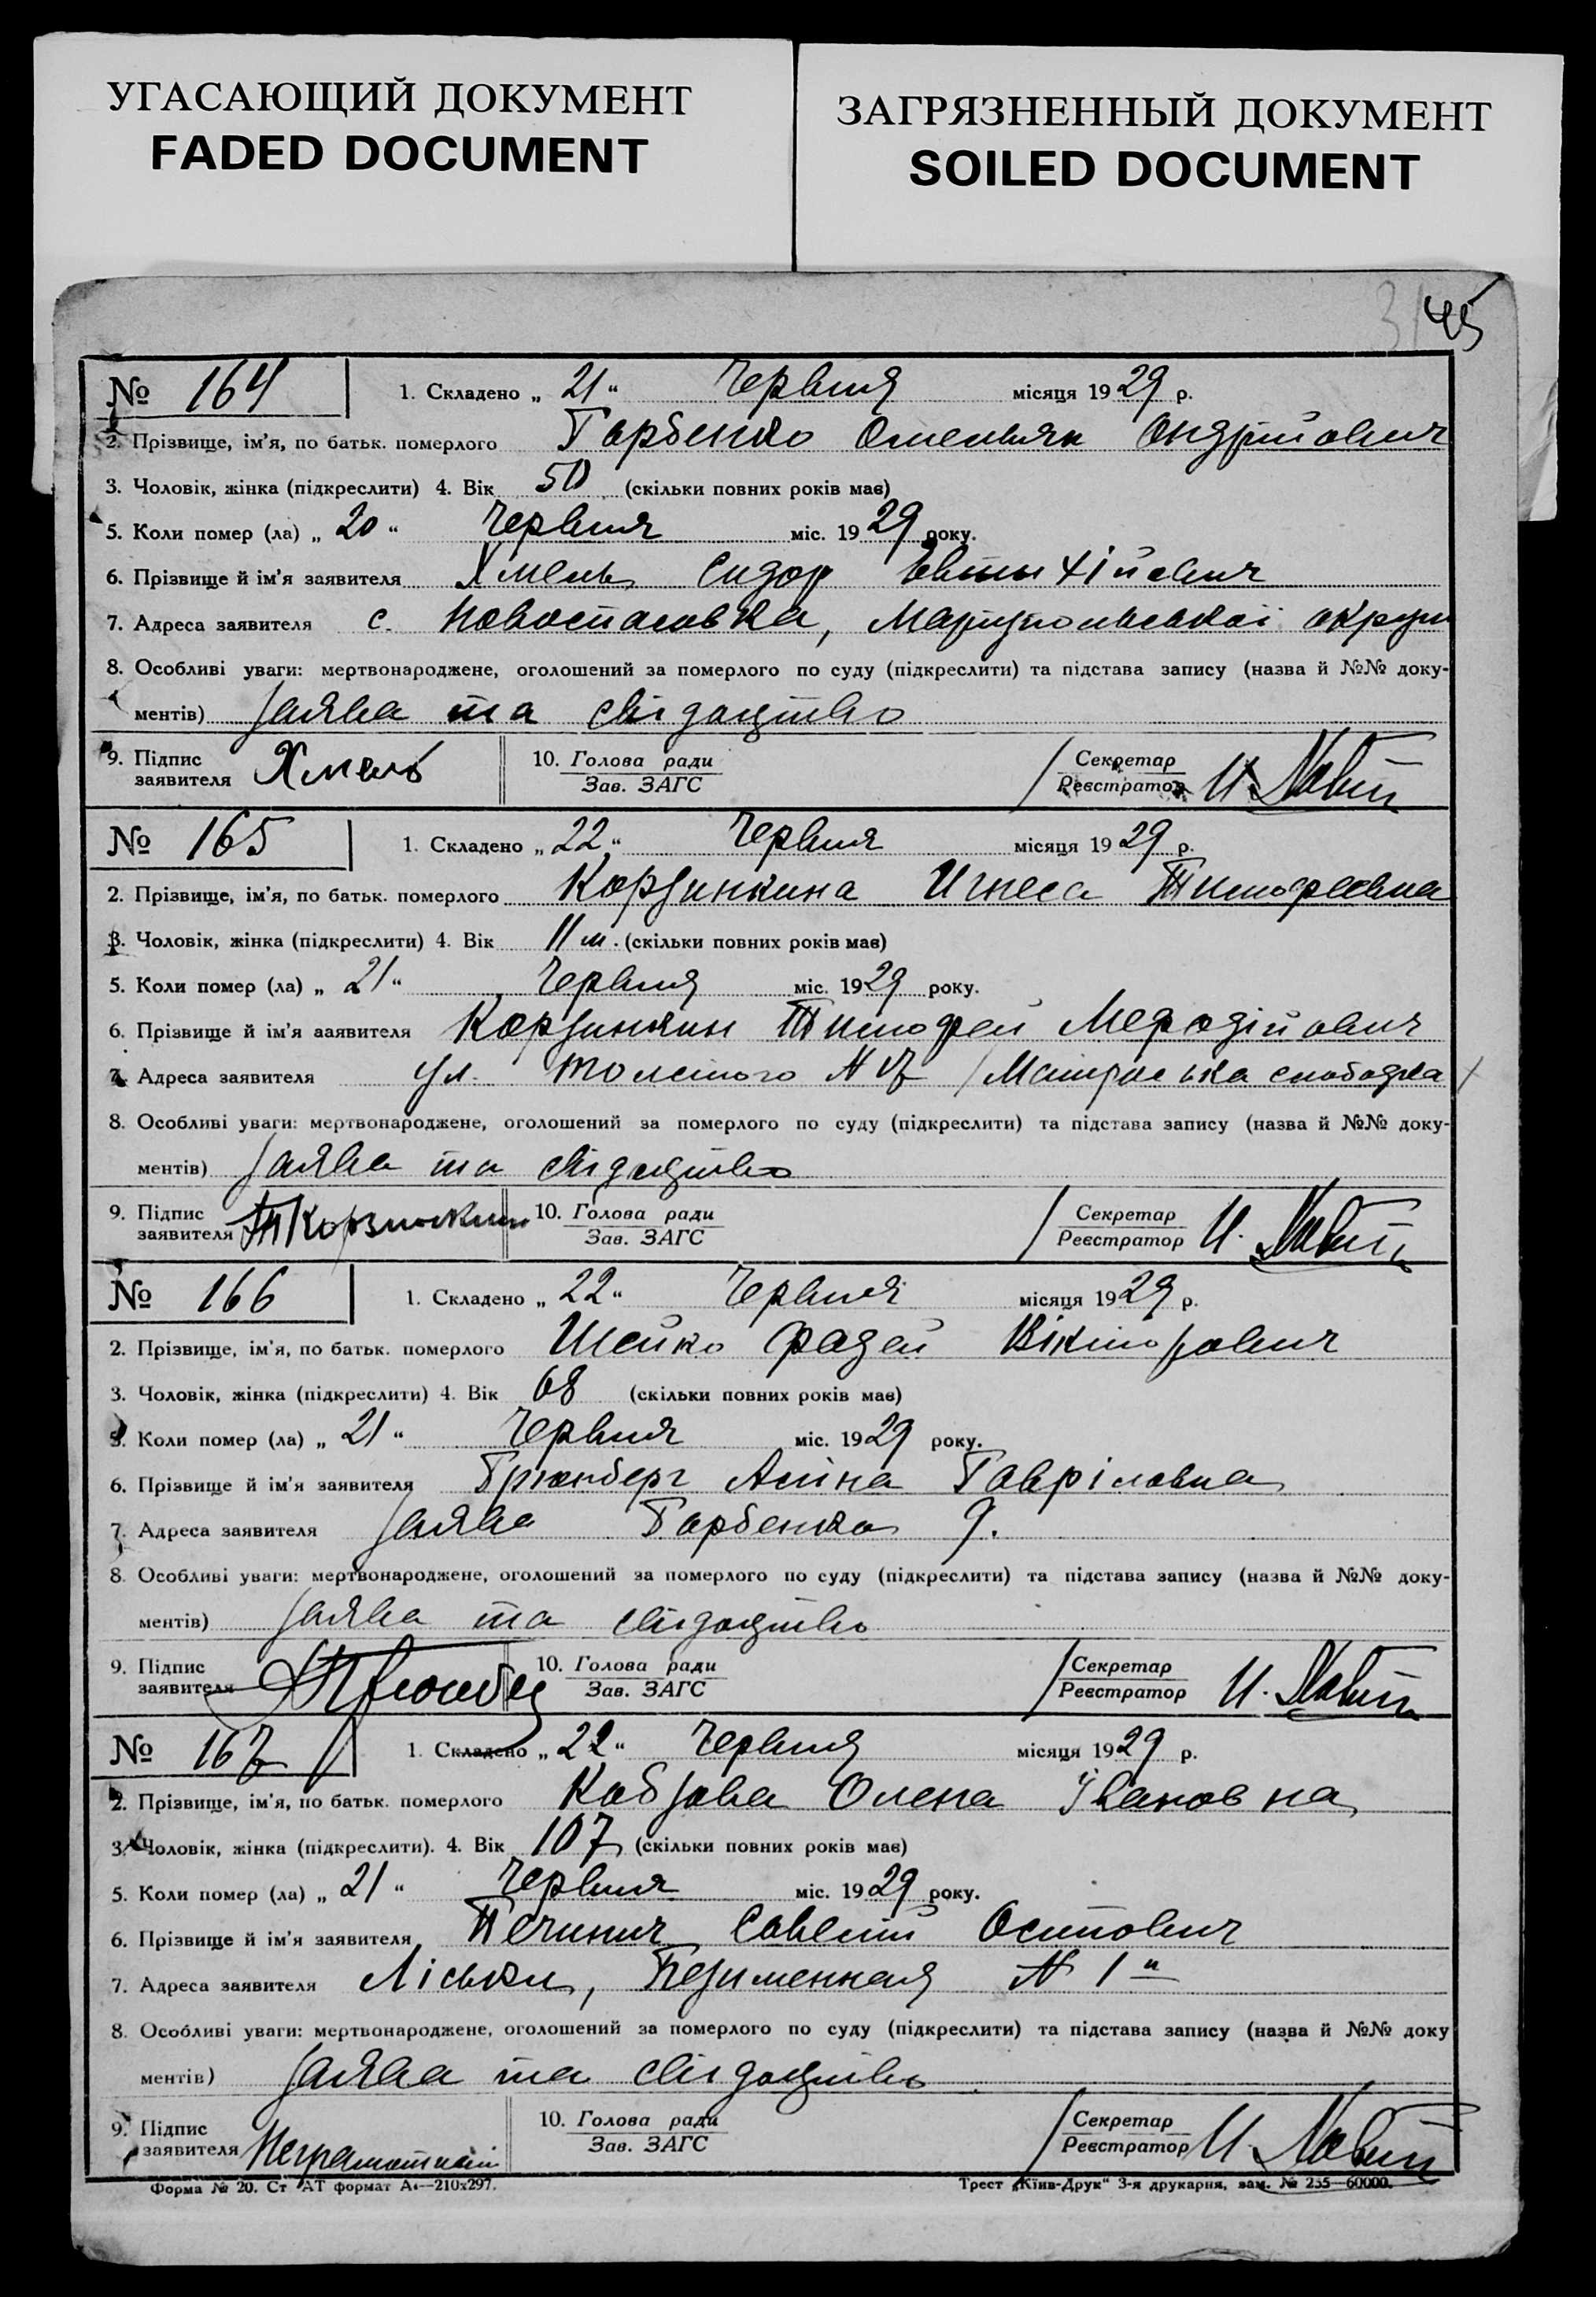 УГАСАЮЩИЙ ДОКУМЕНТ
FADED DOCUMENT
ЗАГРЯЗНЕННЫЙ ДОКУМЕНТ
SOILED DOCUMENT
45
№ 164 1. Складено „ 21 “ Червня місяця 1929 р.
2. Прізвище, ім'я, по батьк. померлого Горбенко Омельян Ондрійович
3. Чоловік, жінка (підкреслити) 4. Вік 50 (скільки повних років має)
5. Коли помер (ла) „ 20 “ Червня міс. 1929 року.
6. Прізвище й ім'я заявителя Хмель Сидор Евтыхійович
7. Адреса заявителя с. Маріупольськоі округи
8. Особливі уваги: мертвонароджене, оголошений за померлого по суду (підкреслити) та підстава запису (назва й №№ доку-
ментів) Заява та свідоцтво
9. Підпис заявителя Хмель 10. Голова ради Зав. ЗАГС Секретар Реєстратор И.
№ 165 1. Складено „ 22 “ Червня місяця 1929 р.
2. Прізвище, ім'я, по батьк. померлого Корзинкина Инеса Тимофеевна
3. Чоловік, жінка (підкреслити) 4. Вік 11 м. (скільки повних років має)
5. Коли помер (ла) „ 21 “ Червня міс. 1929 року.
6. Прізвище й ім'я заявителя Корзинкин Тимофей Мефодійович
7. Адреса заявителя ул. Толстого N 17 / Матроська слободка /
8. Особливі уваги: мертвонароджене, оголошений за померлого по суду (підкреслити) та підстава запису (назва й №№ доку-
ментів) Заява та свідоцтво
9. Підпис заявителя Т Корзинкин 10. Голова ради Зав. ЗАГС Секретар Реєстратор И.
№ 166 1. Складено „ 22 “ Червня місяця 1929 р.
2. Прізвище, ім'я, по батьк. померлого Шейко Фадей Вікторович
3. Чоловік, жінка (підкреслити) 4. Вік 68 (скільки повних років має)
5. Коли помер (ла) „ 21 “ Червня міс. 1929 року.
6. Прізвище й ім'я заявителя Грюнберг Гавріловна
7. Адреса заявителя Заява Горбенко 9.
8. Особливі уваги: мертвонароджене, оголошений за померлого по суду (підкреслити) та підстава запису (назва й №№ доку-
ментів) Заява та свідоцтво
9. Підпис заявителя 10. Голова ради Зав. ЗАГС Секретар Реєстратор И.
№ 167 1. Складено „ 22 “ Червня місяця 1929 р.
2. Прізвище, ім'я, по батьк. померлого Кобзова Олена Івановна
3. Чоловік, жінка (підкреслити). 4. Вік 107 (скільки повних років має)
5. Коли помер (ла) „ 21 “ Червня міс. 1929 року.
6. Прізвище й ім'я заявителя Савелій Осипович
7. Адреса заявителя Ліськи, N 1
8. Особливі уваги: мертвонароджене, оголошений за померлого по суду (підкреслити) та підстава запису (назва й №№ доку
ментів) Заява та свідоцтво
9. Підпис заявителя Неграмотний 10. Голова ради Зав. ЗАГС Секретар Реєстратор И.
Форма № 20. Ст АТ формат А4—210х297. Трест „Київ-Друк“ 3-я друкарня, зам. № 235—60000.